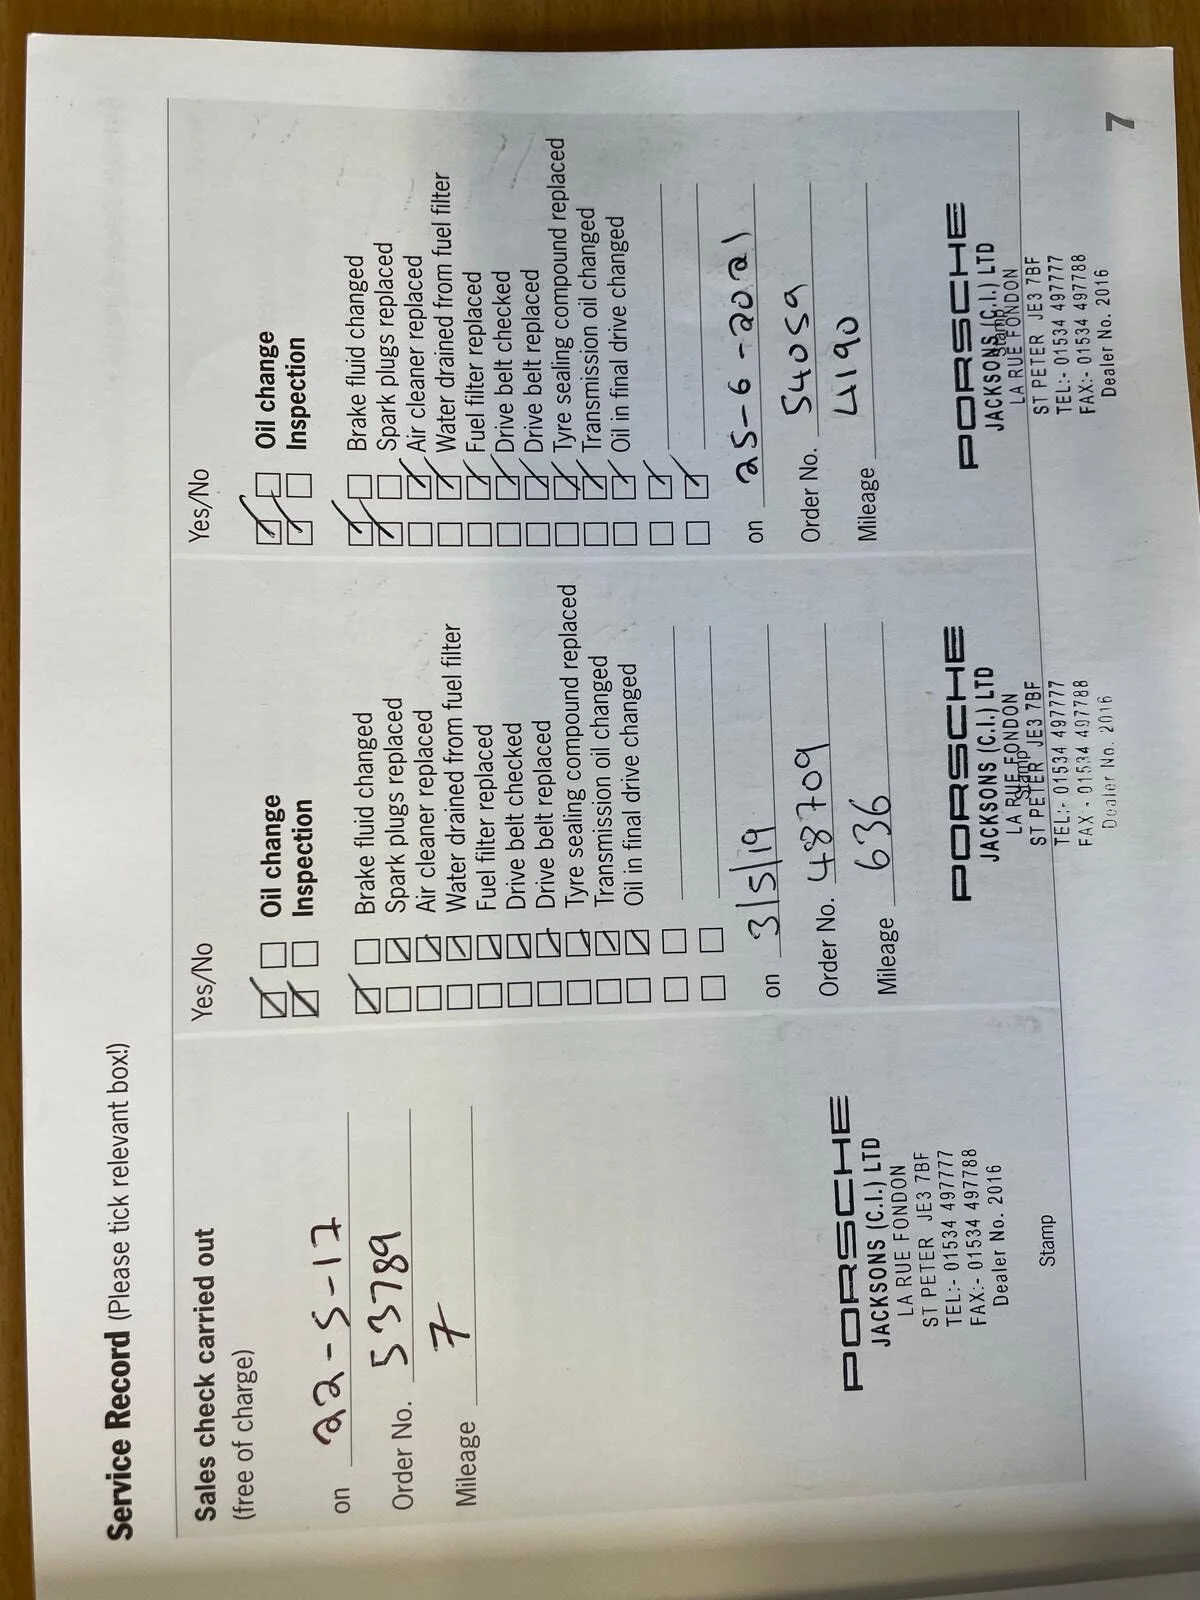 Service Record (Please tick relevant box!)
Sales check carried out
(free of charge)
on 22-5-17
Order No. 53789
Mileage 7
PORSCHE
JACKSONS (C.I.) LTD
LA RUE FONDON
ST PETER JE3 7BF
TEL:- 01534 497777
FAX:- 01534 497788
Dealer No. 2016
Stamp
Yes/No
Oil change
Inspection
Brake fluid changed
Spark plugs replaced
Air cleaner replaced
Water drained from fuel filter
Fuel filter replaced
Drive belt checked
Drive belt replaced
Tyre sealing compound replaced
Transmission oil changed
Oil in final drive changed
on 3/5/19
Order No. 48709
Mileage 636
PORSCHE
JACKSONS (C.I.) LTD
LA RUE FONDON
Stamp
ST PETER JE3 7BF
TEL:- 01534 497777
FAX - 01534 497788
Dealer No. 2016
Yes/No
Oil change
Inspection
Brake fluid changed
Spark plugs replaced
Air cleaner replaced
Water drained from fuel filter
Fuel filter replaced
Drive belt checked
Drive belt replaced
Tyre sealing compound replaced
Transmission oil changed
Oil in final drive changed
on 25-6-2021
Order No. 54059
Mileage 4190
PORSCHE
JACKSONS (C.I.) LTD
Stamp
LA RUE FONDON
ST PETER JE3 7BF
TEL:- 01534 497777
FAX:- 01534 497788
Dealer No. 2016
7